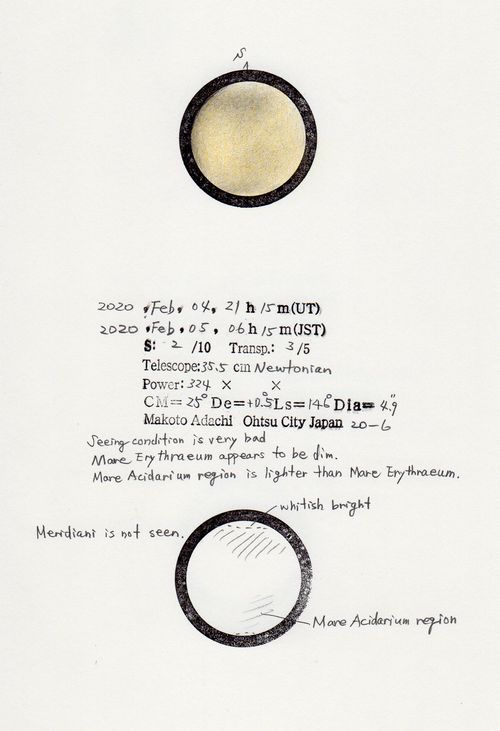 S
2020 , Feb, 04, 21 h 15 m(UT)
2020 , Feb, 05, 06 h 15 m(JST)
S: 2 /10 Transp.: 3 /5
Telescope: 35.5 cm Newtonian
Power: 324 × ×
CM= 25° De= +0.5° Ls= 146° Dia= 4.9"
Makoto Adachi Ohtsu City Japan 20-6
Seeing condition is very bad
Mare Erythraeum appears to be dim.
Mare Acidarium region is lighter than Mare Erythraeum.
whitish bright
Meridiani is not seen.
Mare Acidarium region